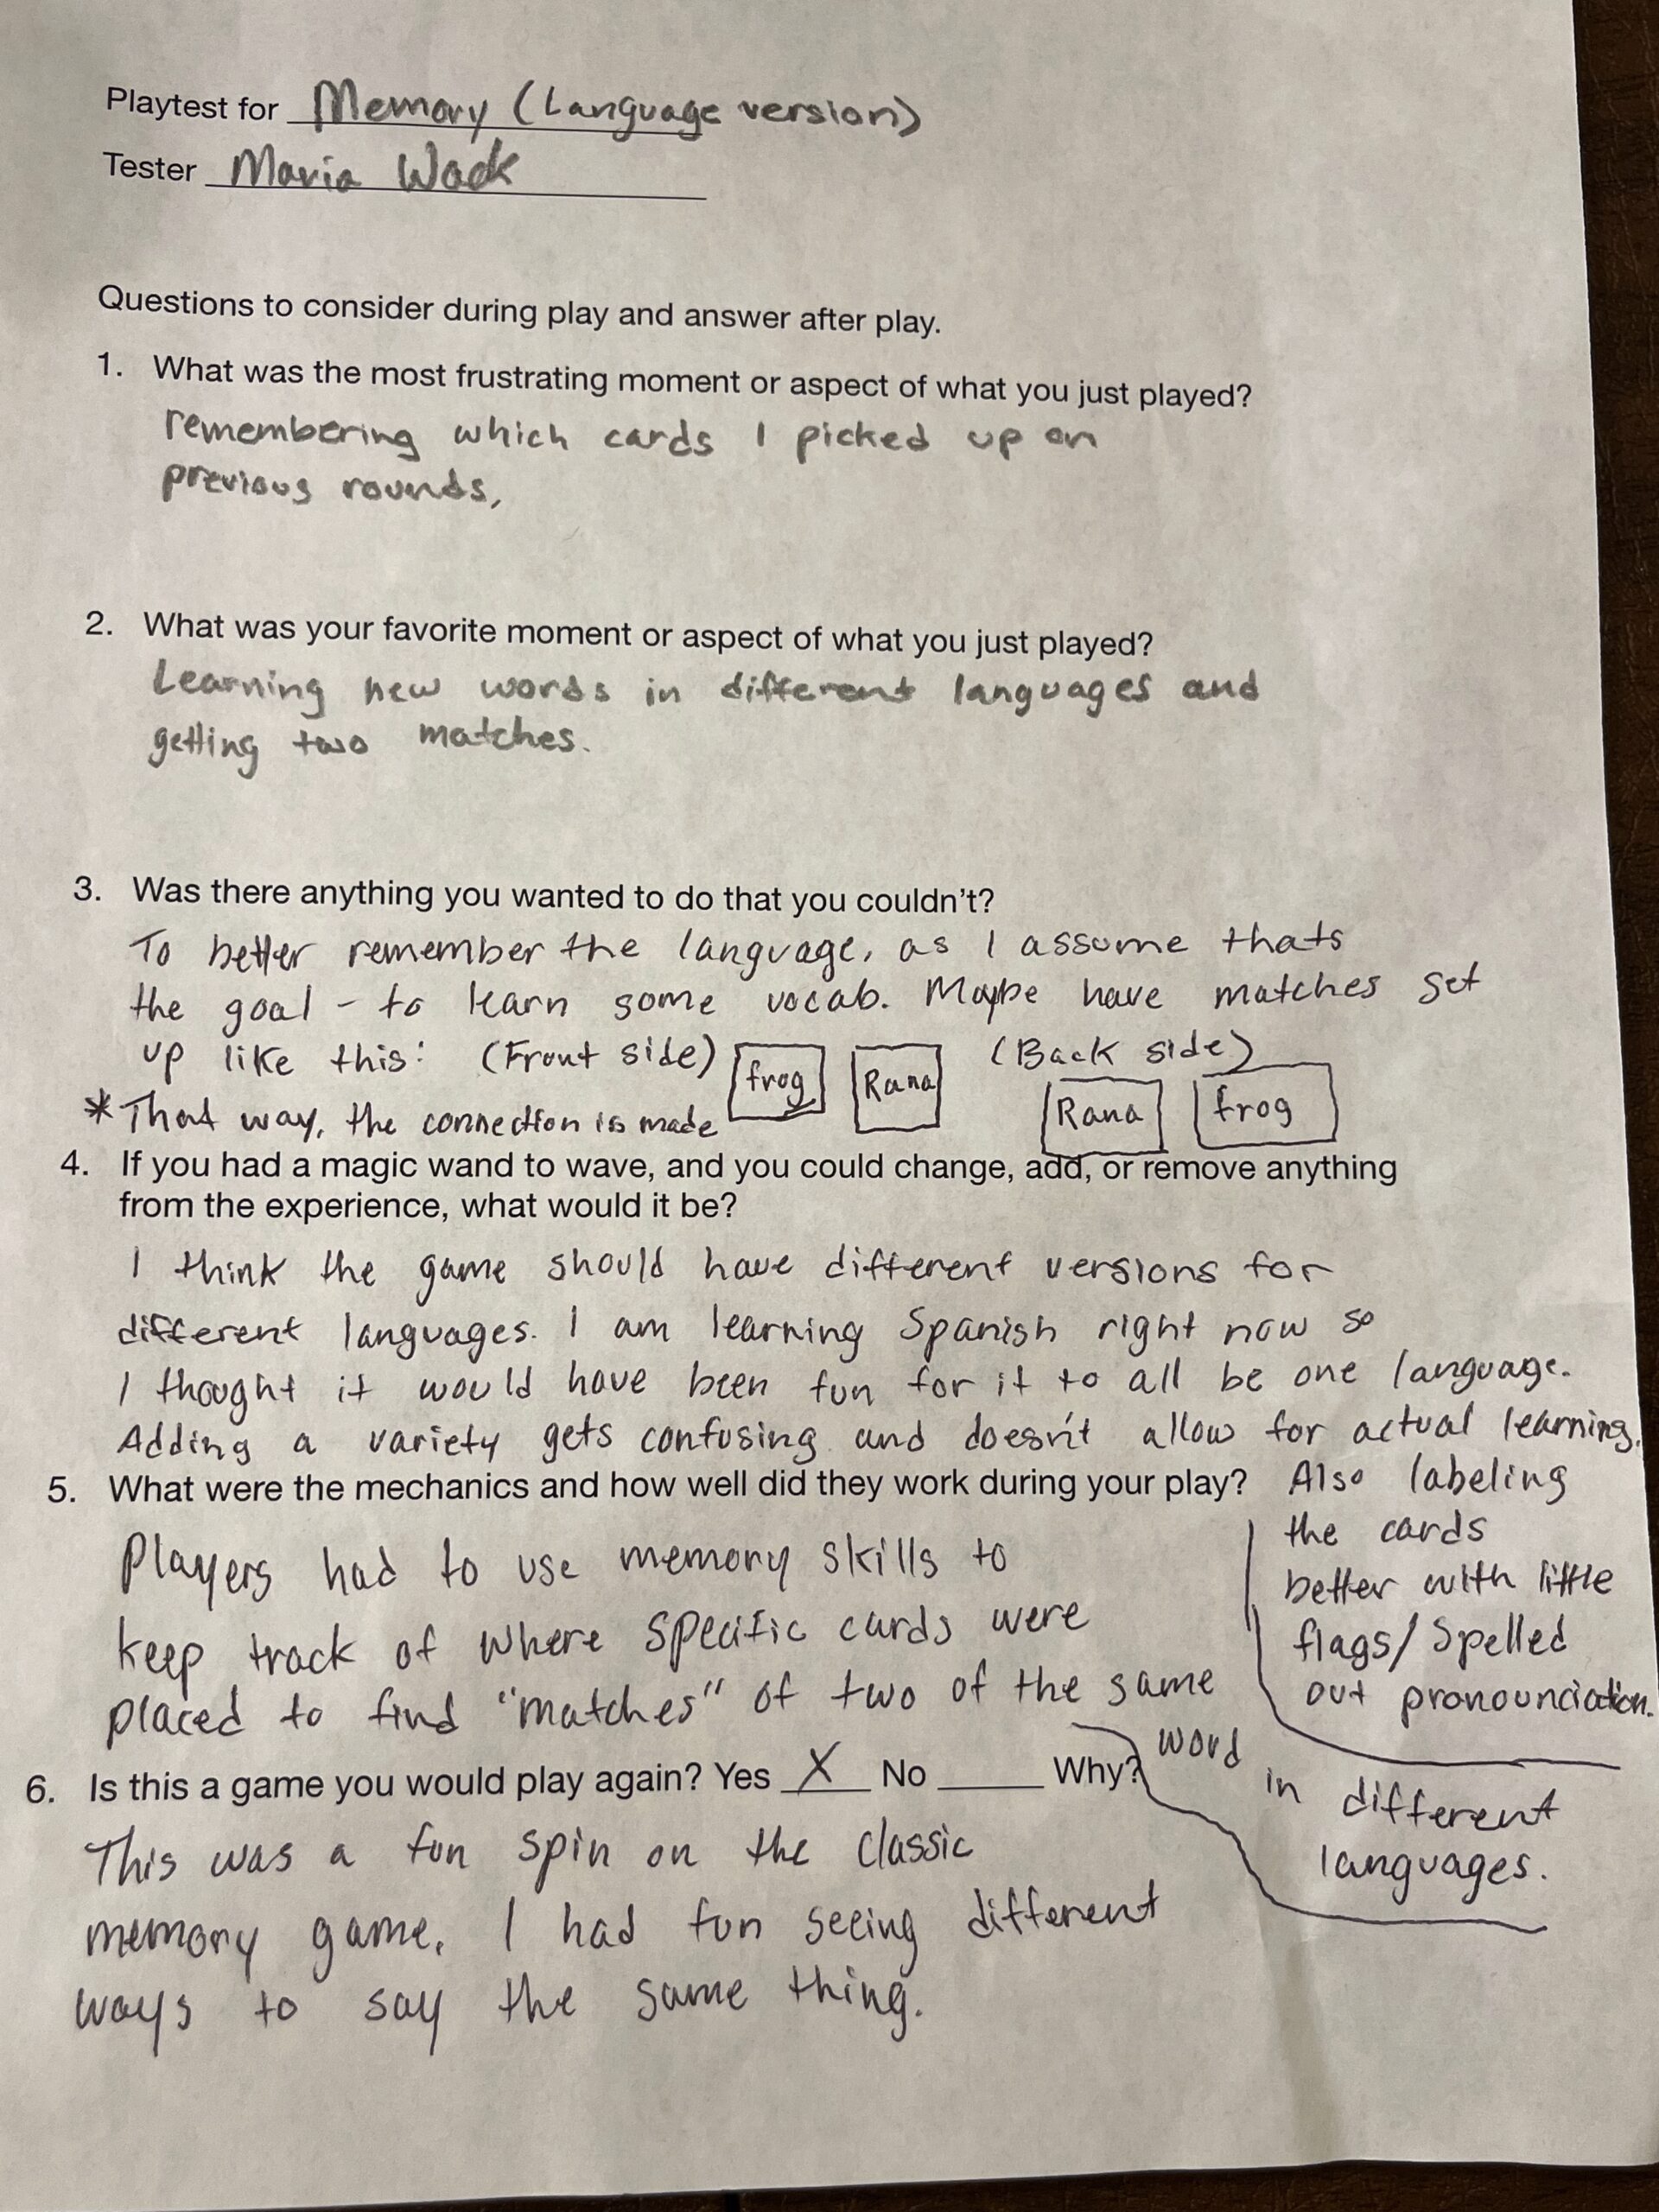 Playtest for Memory (Language version)
Tester Maria Wack
Questions to consider during play and answer after play.
1. What was the most frustrating moment or aspect of what you just played?
remembering which cards I picked up on
previous rounds,
2. What was your favorite moment or aspect of what you just played?
Learning new words in different languages and
getting two matches.
3. Was there anything you wanted to do that you couldn't?
To better remember the language, as I assume thats
the goal - to learn some vocab. Maybe have matches set
up like this: (Front side) frog Rana (Back side) Rana frog
*That way, the connection is made
4. If you had a magic wand to wave, and you could change, add, or remove anything
from the experience, what would it be?
I think the game should have different versions for
different languages. I am learning Spanish right now so
I thought it would have been fun for it to all be one language.
Adding a variety gets confusing and doesn't allow for actual learning.
Also labeling
the cards
better with little
flags/spelled
out pronounciation.
5. What were the mechanics and how well did they work during your play?
Players had to use memory skills to
keep track of where specific cards were
placed to find "matches" of two of the same
word
in different
languages.
6. Is this a game you would play again? Yes X No _____ Why?
This was a fun spin on the classic
memory game. I had fun seeing different
ways to say the same thing.